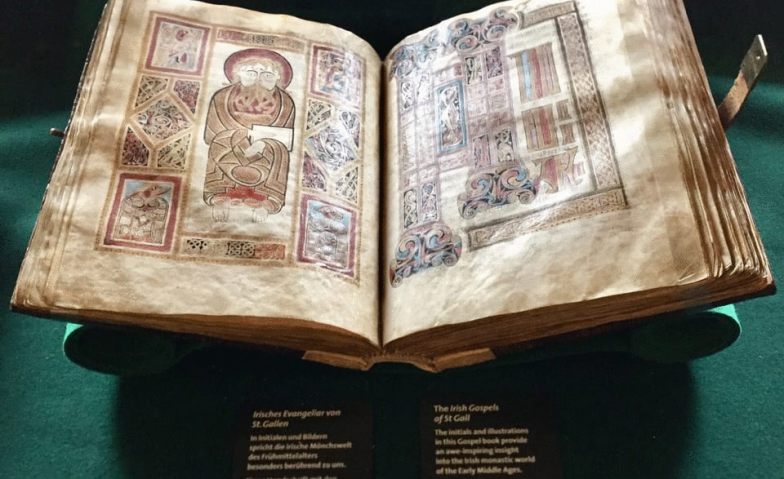 Irisches Evangeliar von
St. Gallen
In Initialen und Bildern
spricht die irische Mönchswelt
des Frühmittelalters
besonders berührend zu uns.
The Irish Gospels
of St Gall
The initials and illustrations
in this Gospel book provide
an awe-inspiring insight
into the Irish monastic world
of the Early Middle Ages.